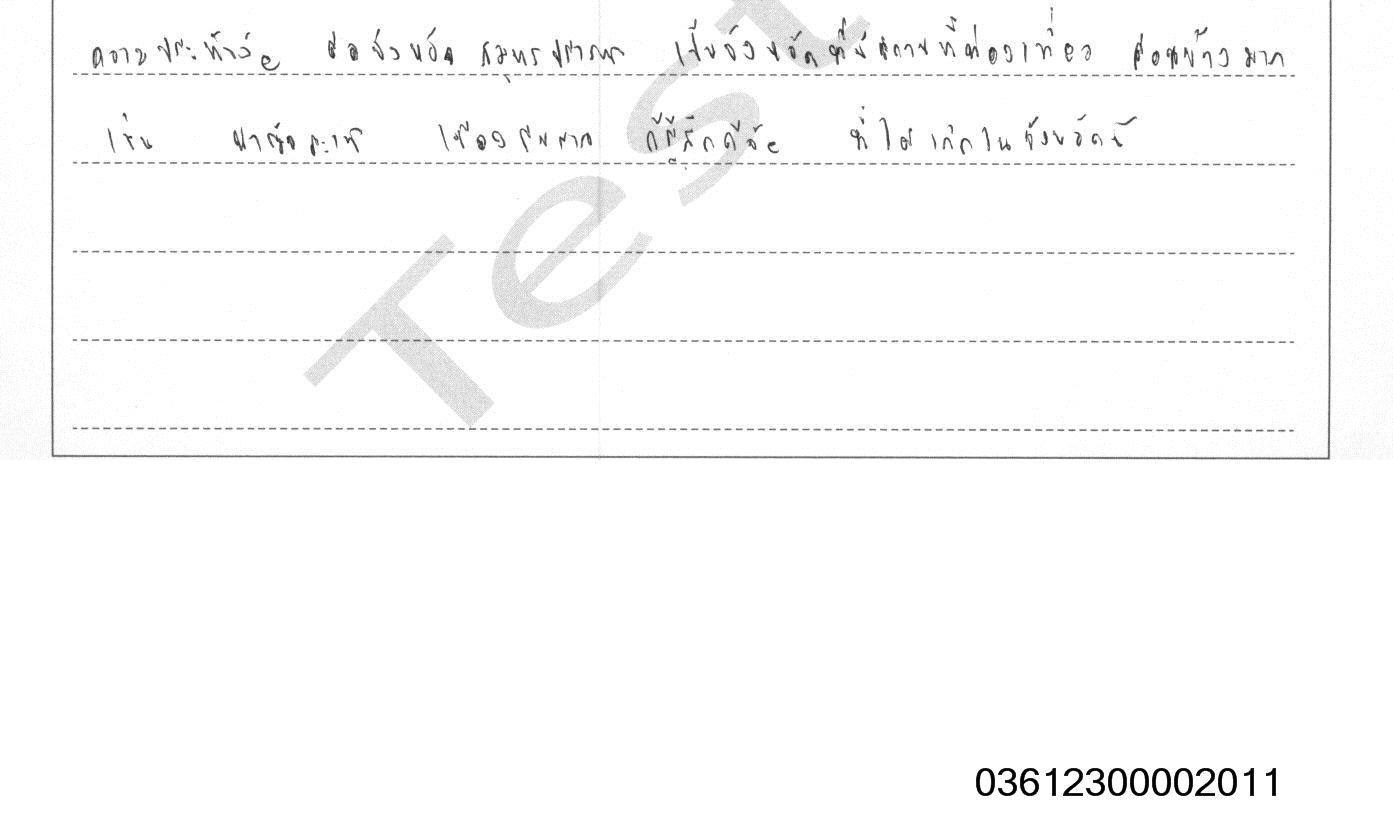 ความประทับใจ คือจังหวัด สมุทรปราการ เป็นจังหวัดที่มีสถานที่ท่องเที่ยว ค่อนข้างมาก
เช่น เมืองโบราณ ก็รู้สึกดีใจ ที่ได้เกิดในจังหวัดนี้
Test
03612300002011